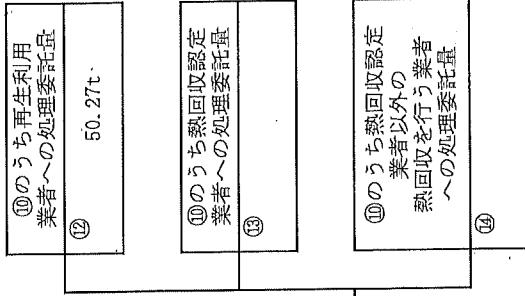 ⑩のうち再生利用
業者への処理委託量
⑫
50.27t
⑩のうち熱回収認定
業者への処理委託量
⑬
⑩のうち熱回収認定
業者以外の
熱回収を行う業者
への処理委託量
⑭